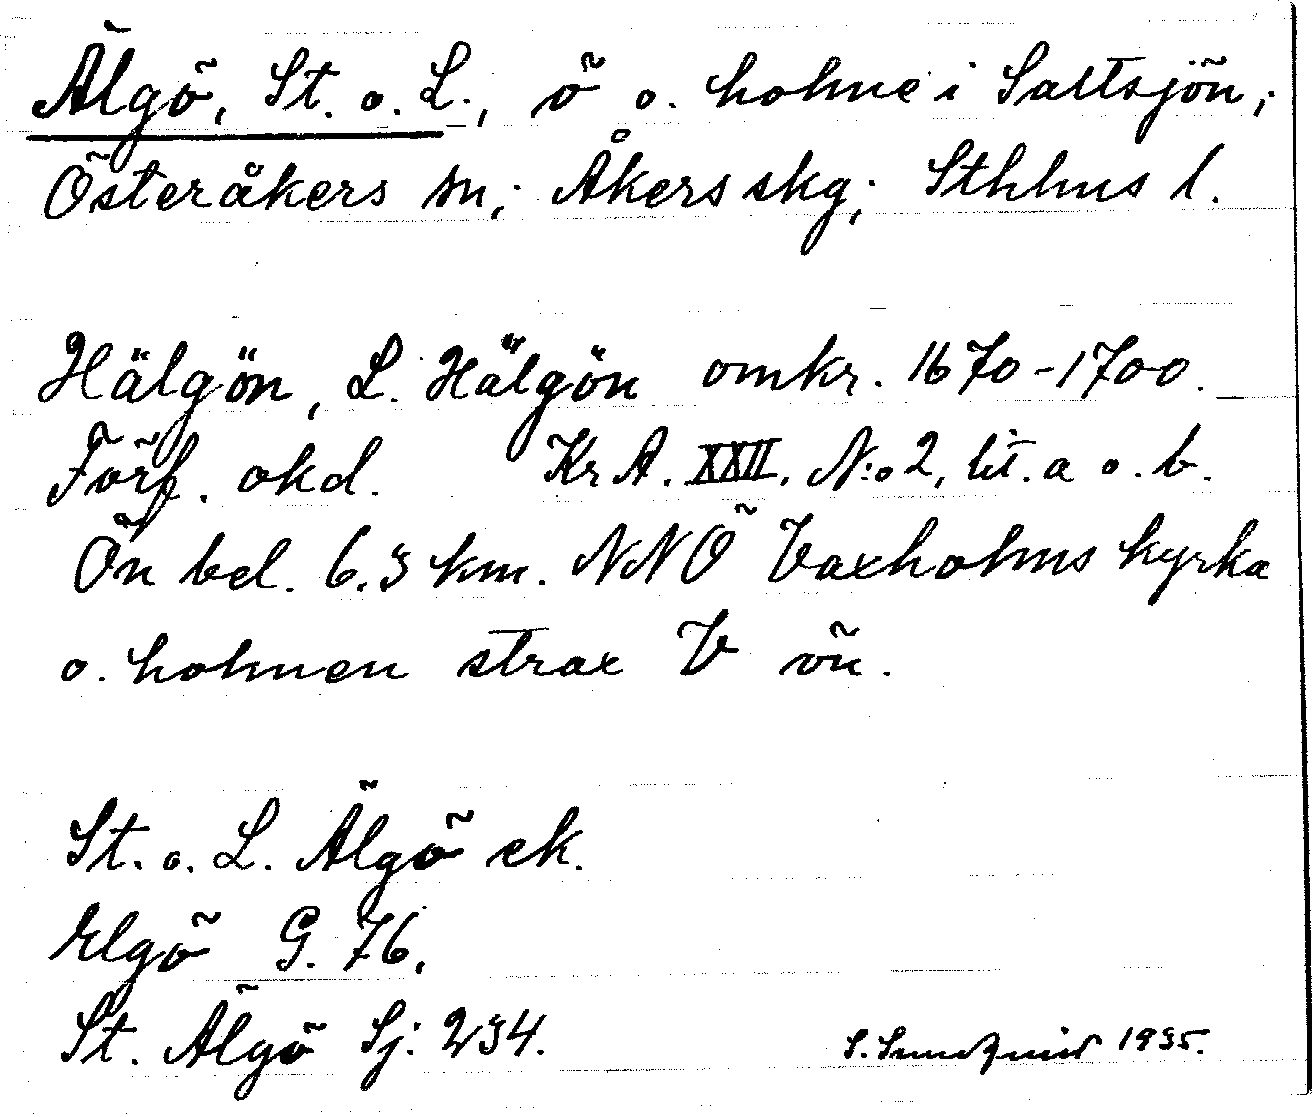 Älgö, St. o. L., ö o. holme i Saltsjön;
Österåkers sn; Åkers skg; Sthlms l.
Hälgön, L. Hälgön omkr. 1670-1700.
Förf. okd. Kr A. XXII. N:o 2, lit. a o. b.
Ön bel. 6.5 km. NNÖ Vaxholms kyrka
o. holmen strax V ön.
St. o. L. Älgö ek.
Elgö G. 76.
St. Älgö Sj: 234.
S. Sundqvist 1935.